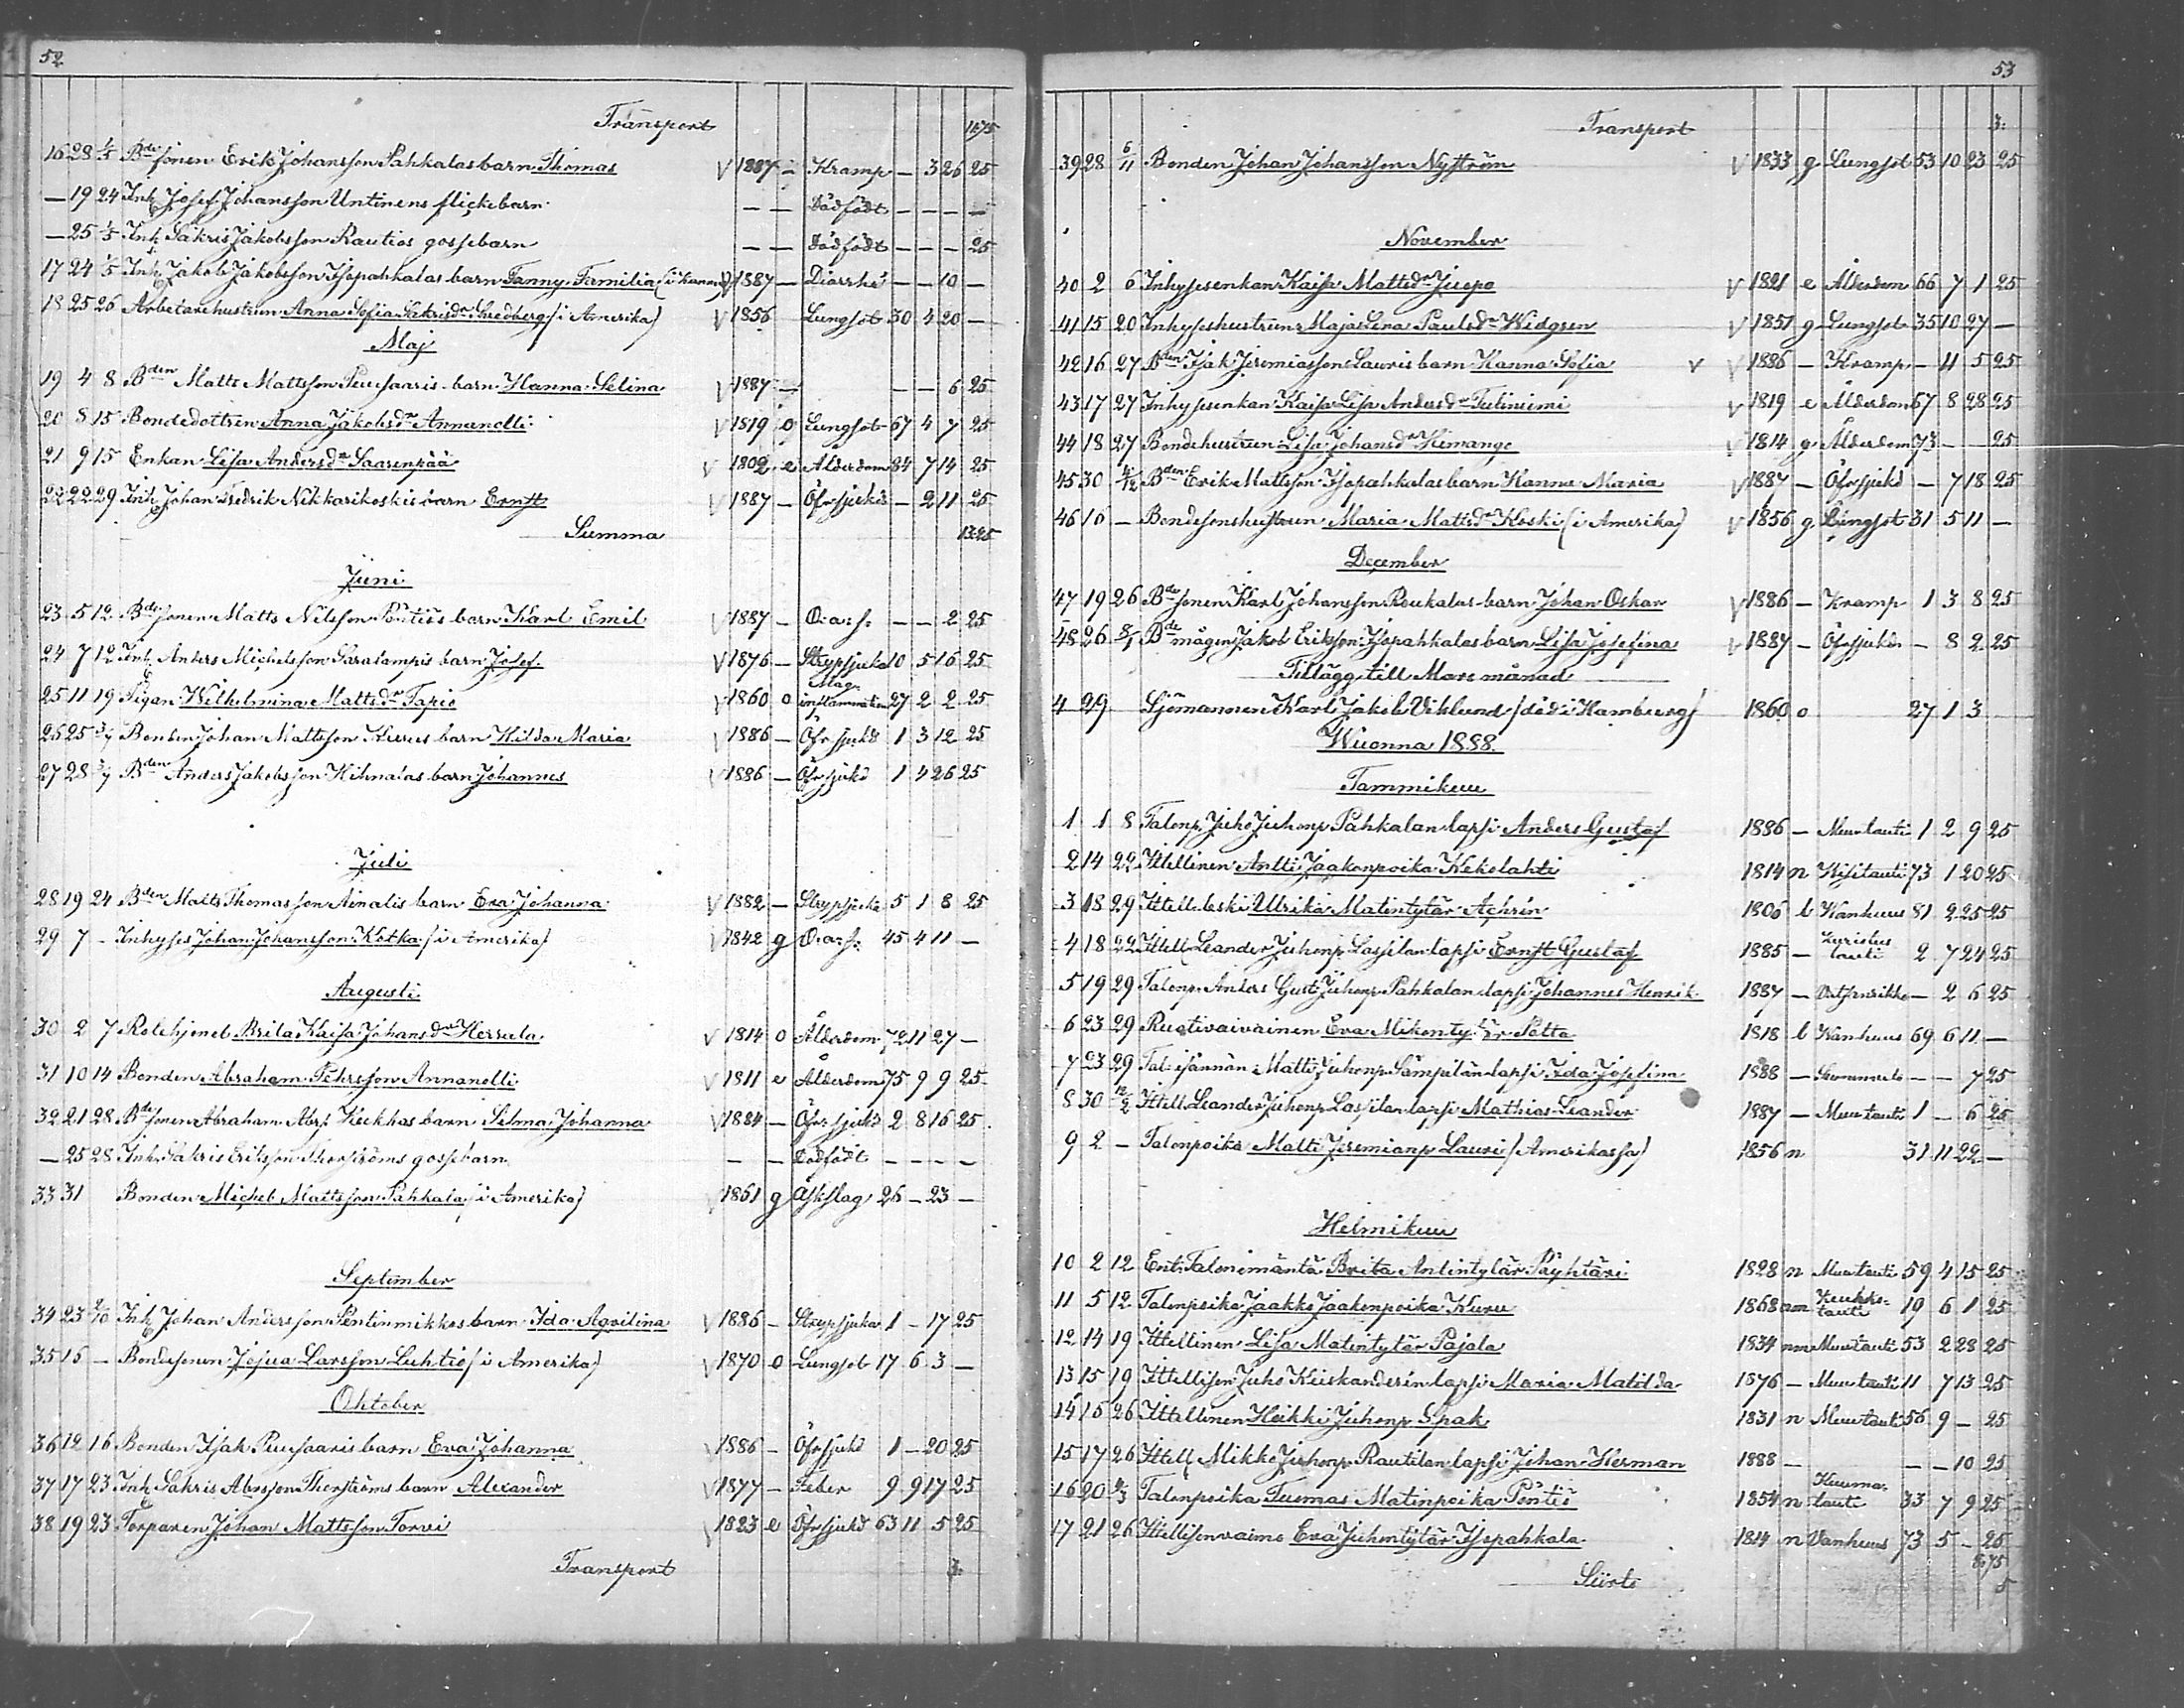 52
Transport 11:75
16 28 1/5 Bdesonen Erik Johansson Pahkalas barn Thomas V 1887 – Kramp – 3 26 25
– 19 24 Inh Josef Johansson Untinens flickebarn – – Dödfödt – – – –
– 25 1/5 Inh Sakris Jakobsson Rautios gossebarn – – Dödfödt – – – 25
17 24 1/5 Inh Jakob Jakobsson Isopahkalas barn Fanny Familia V 1887 – Diarrhé – – 10 –
18 25 26 Arbetarehustrun Anna Sofia Sakrisdr (i Amerika) V 1856 Lungsot 30 4 20 –
Maj
19 4 8 Bden Matts Mattsson Puusaaris barn Hanna Selina V 1887 – – – 6 25
20 8 15 Bondedottren Anna Jakobsdr Annanolli V 1819 o Lungsot 67 4 7 25
21 9 15 Enkan Lisa Andersdr Saarenpää V 1802 e Ålderdom 84 7 14 25
22 22 29 Inh Johan Fredrik Nikkarikoskis barn Ernst V 1887 – Öfrsjukd – 2 11 25
Summa 13:25
Juni
23 5 12 Bdesonen Matts Nilsson Pöntiös barn Karl Emil V 1887 – O.a.s: – – 2 25
24 7 12 Inh Anders Michelsson Saralampis barn Josef V 1876 – Strypsjuka 10 5 16 25
25 11 19 Pigan Wilhelmina Mattsdr Tapio V 1860 o Mag. inflammation 27 2 2 25
26 25 3/7 Bonden Johan Mattsson Kurus barn Hilda Maria V 1886 – Öfr sjukd 1 3 12 25
27 28 3/7 Bden Anders Jakobsson Hihnalas barn Johannes V 1886 – Öfr sjukd 1 4 26 25
Juli
28 19 24 Bden Matts Thomasson Ainalis barn Eva Johanna V 1882 – Strypsjuka 5 1 8 25
29 7 – Inhyses Johan Johansson Kotka (i Amerika) V 1842 g O.a.s: 45 4 11 –
Augusti
30 2 7 Rotehjonet Brita Kaisa Johansdr Herrala V 1814 o Ålderdom 72 11 27 –
31 10 14 Bonden Abraham Pehrsson Annanolli V 1811 e Ålderdom 75 9 9 25
32 21 28 Bdesonen Abraham Abrs Keckhas barn Selma Johanna V 1884 – Öfr. sjukd 2 8 16 25
– 25 28 Inh. Sakris Eriksson Thorströms gossebarn – – Dödfödt – – – –
33 31 Bonden Michel Mattsson Pahkala (i Amerika) V 1861 g Åskslag 26 – 23 –
September
34 23 2/10 Inh Johan Andersson Pentinmikkos barn Ida Aqvilina V 1886 – Strypsjuka 1 – 17 25
35 16 – Bondesonen Josua Larsson Luhtio (i Amerika) V 1870 o Lungsot 17 6 3 –
Oktober
36 12 16 Bonden Isak Puusaaris barn Eva Johanna V 1886 – Öfrsjukd 1 – 20 25
37 17 23 Inh Sakris Abrsson Thorströms barn Alexander V 1877 – Feber 9 9 17 25
38 19 23 Torparen Johan Mattsson Torvi V 1823 e Öfrsjukd 63 11 5 25
Transport 3:
53
Transport 3:
39 28 6/11 Bonden Johan Johansson Nyström V 1833 g Lungsot 53 10 23 25
November
40 2 6 Inhysesenkan Kaisa Mattsdr Juopo V 1821 e Ålderdom 66 7 1 25
41 15 20 Inhyseshustrun Maja Lena Paulsdr Widgren V 1851 g Lungsot 35 10 27 –
42 16 27 Bden Isak Jeremiasson Lauris barn Hanna Sofia V V 1886 – Kramp – 11 5 25
43 17 27 Inhysesenkan Kaisa Lisa Andersdr Tuliniemi V 1819 e Ålderdom 67 8 28 25
44 18 27 Bondehustrun Lisa Johansdr Himango V 1814 g Ålderdom 73 – – 25
45 30 4/12 Bden Erik Mattsson Isopahkalas barn Hanna Maria V 1887 – Öfrsjukd – 7 18 25
46 16 – Bondesonshustrun Maria Mattsdr Koski (i Amerika) V 1856 g Lungsot 31 5 11 –
December
47 19 26 Bdesonen Karl Johansson Roukalas barn Johan Oskar V 1886 – Kramp 1 3 8 25
48 26 8/1 Bdemågen Jakob Eriksson Isopahkalas barn Lisa Josefina V 1887 – Öfrsjukd – 8 2 25
Tillägg till Mars månad
4 29 Sjömannen Karl Jakob Viklund (död i Hamburg) 1860 o 27 1 3
Wuonna 1888.
Tammikuu
1 1 8 Talonp. Juho Juhonp Pahkalan lapsi Anders Gustaf 1886 – Muu tauti 1 2 9 25
2 14 22 Itsellinen Antti Jaakonpoika Kekolahti 1814 n 73 1 20 25
3 18 29 Itsell. leski Ullrika Matintytär Achrén 1806 l Wanhuus 81 2 25 25
4 18 22 Itsell Leander Juhonp Lassilan lapsi Ernst Gustaf 1885 – Kuristus tauti 2 7 24 25
5 19 29 Talonp. Anders Gust Juhonp Pahkalan lapsi Johannes Henrik 1887 – – 2 6 25
6 23 29 Ruotivaivainen Eva Mikontytär Patta 1818 l Wanhuus 69 6 11 –
7 23 29 Tal. isännän Matti Juhonp Sämpilän lapsi Ida Josefina 1888 – – – 7 25
8 30 12/2 Itsell Leander Juhonp Lassilan lapsi Mathias Leander 1887 – Muu tauti 1 – 6 25
9 2 – Talonpoika Matti Jeremianp Lauri (Amerikassa) 1856 n 31 11 22 –
Helmikuu
10 2 12 Ent. Talonimäntä Brita Antintytär Päyhtäri 1828 n Muu tauti 59 4 15 25
11 5 12 Talonpoika Jaakko Jaakonpoika Kuru 1868 nm Keuhko-tauti 19 6 1 25
12 14 19 Itsellinen Lisa Matintytär Pajala 1834 nm Muu tauti 53 2 28 25
13 15 19 Itsellisen Juho Keiskanderin lapsi Maria Matilda 1876 – Muu tauti 11 7 13 25
14 16 26 Itsellinen Heikki Juhonp Spak 1831 n Muu tauti 56 9 – 25
15 17 26 Itsell Mikko Juhonp Rautilan lapsi Johan Herman 1888 – – – 10 25
16 20 4/3 Talonpoika Tuomas Matinpoika Pöntiö 1854 n Kuuma tauti 33 7 9 25
17 21 26 Itsellisenvaimo Eva Juhontytär Isopahkala 1814 n Vanhuus 73 5 – 25
Siirto